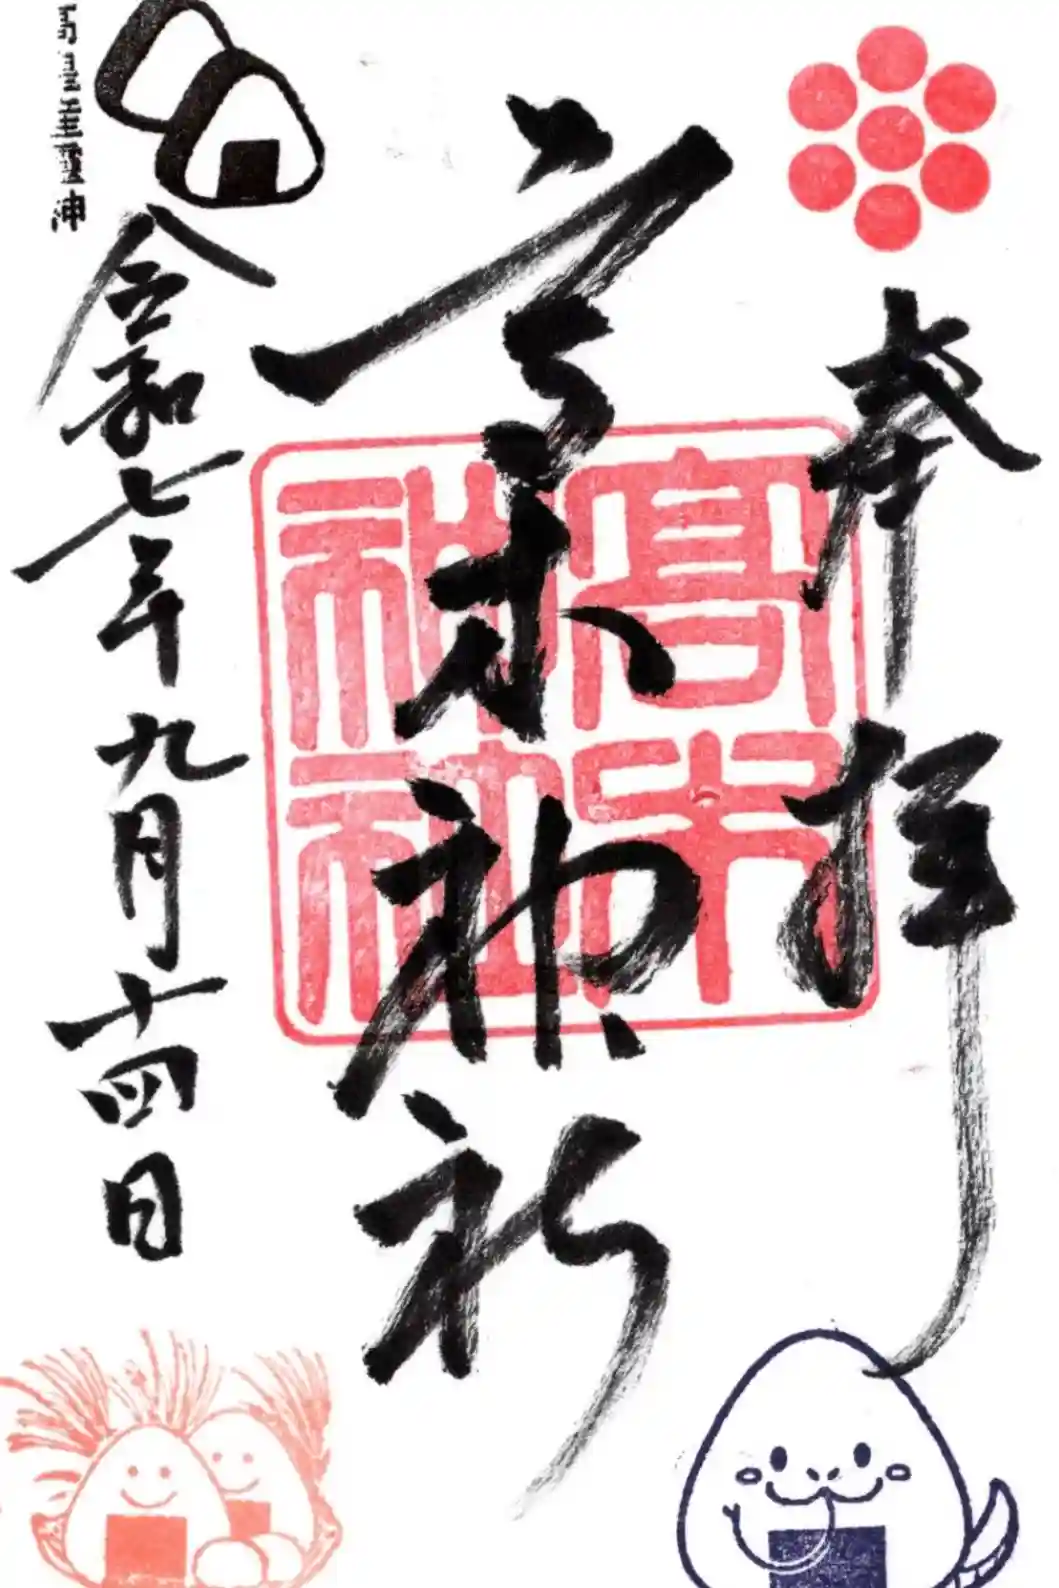 奉拝
高木神社
髙木
神社
令和七年九月十四日